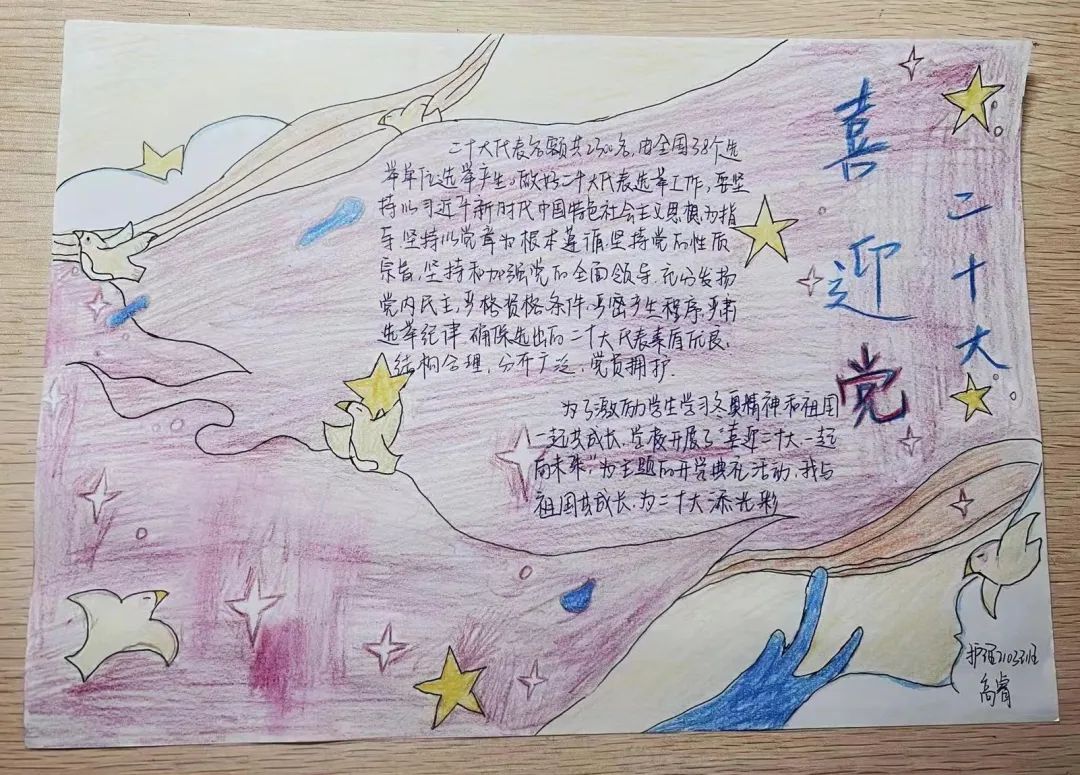 喜迎党
二十大
二十大代表名额共2300名,由全国38个选
举单位选举产生。做好二十大代表选举工作,要坚
持以习近平新时代中国特色社会主义思想为指
导,坚持以党章为根本遵循,坚持党的性质
宗旨,坚持和加强党的全面领导,充分发扬
党内民主,严格资格条件,严密产生程序,严肃
选举纪律,确保选出的二十大代表素质优良、
结构合理、分布广泛、党员拥护.
为了激励学生学习冬奥精神和祖国
一起共成长,学校开展了“喜迎二十大,一起
向未来,”为主题的开学典礼活动,我与
祖国共成长,为二十大添光彩
护理2103班
高睿